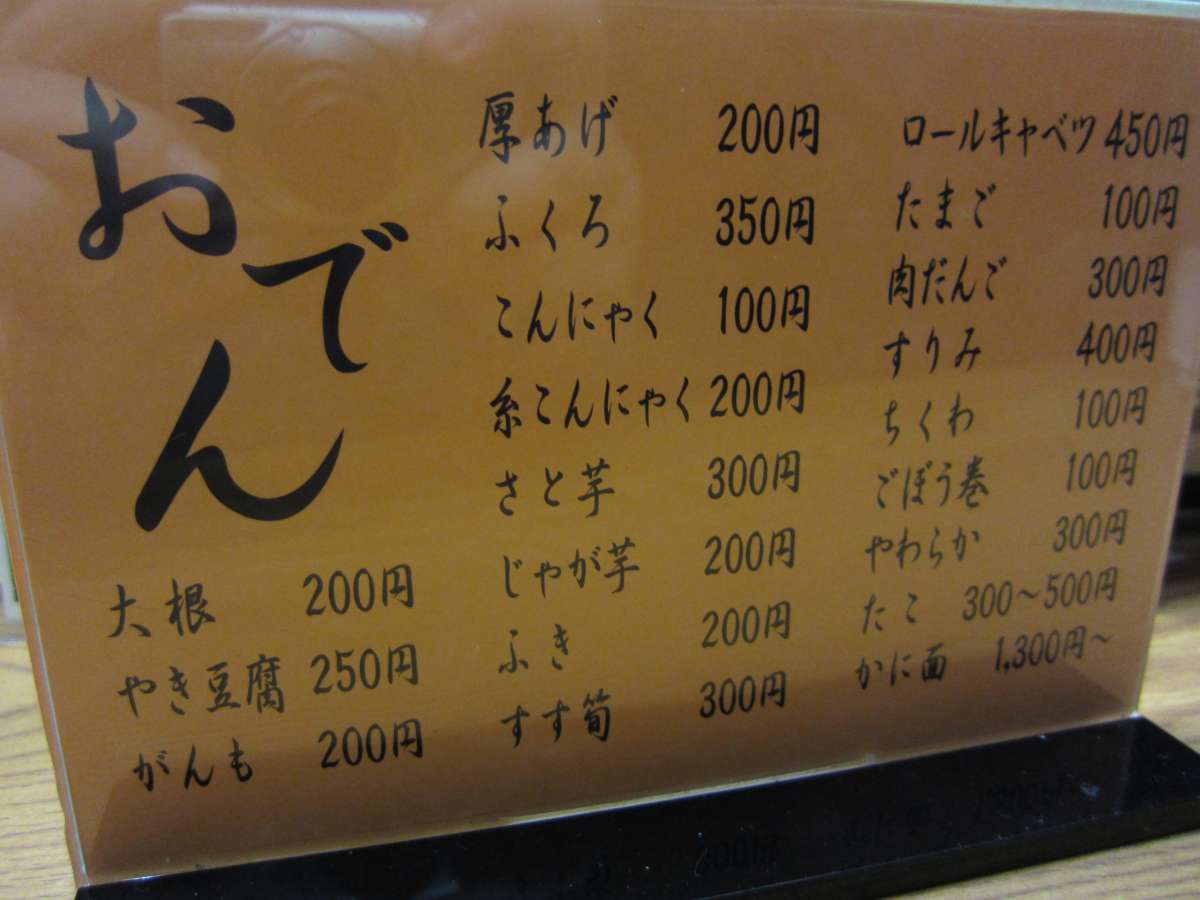 おでん
大根 200円
やき豆腐 250円
がんも 200円
厚あげ 200円
ふくろ 350円
こんにゃく 100円
糸こんにゃく 200円
さと芋 300円
じゃが芋 200円
ふき 200円
すす筍 300円
ロールキャベツ 450円
たまご 100円
肉だんご 300円
すりみ 400円
ちくわ 100円
ごぼう巻 100円
やわらか 300円
たこ 300〜500円
かに面 1,300円〜